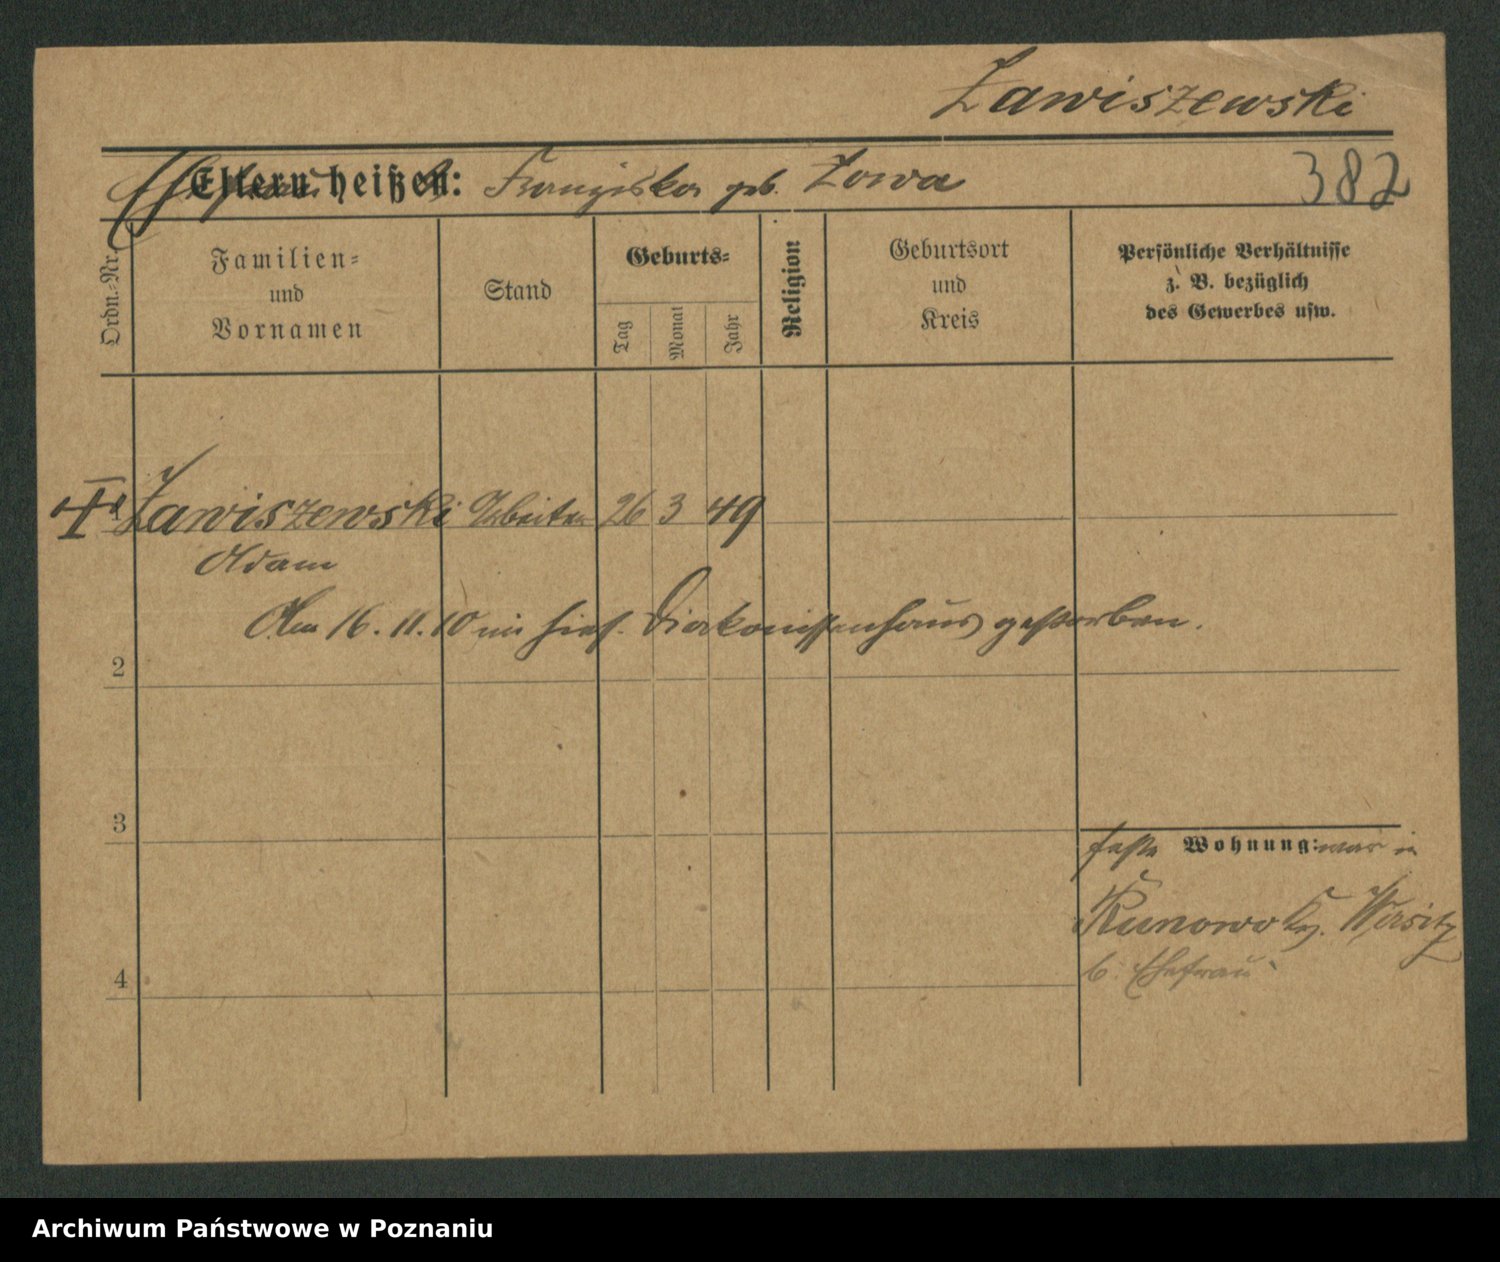 Zawiszewski
Eltern heißen: Franziska geb. Zowa
382
Ordn.-Nr.
Familien-
und
Vornamen
Stand
Geburts-
Tag
Monat
Jahr
Religion
Geburtsort
und
Kreis
Persönliche Verhältnisse
z. B. bezüglich
des Gewerbes usw.
1 Zawiszewski Arbeiter 26 3 49
Adam
Am 16.11.10 im hies. Diakonissenhaus gestorben.
2
3
feste Wohnung: war in
Runowo Kr. Wirsitz
b. Ehefrau
4
Archiwum Państwowe w Poznaniu